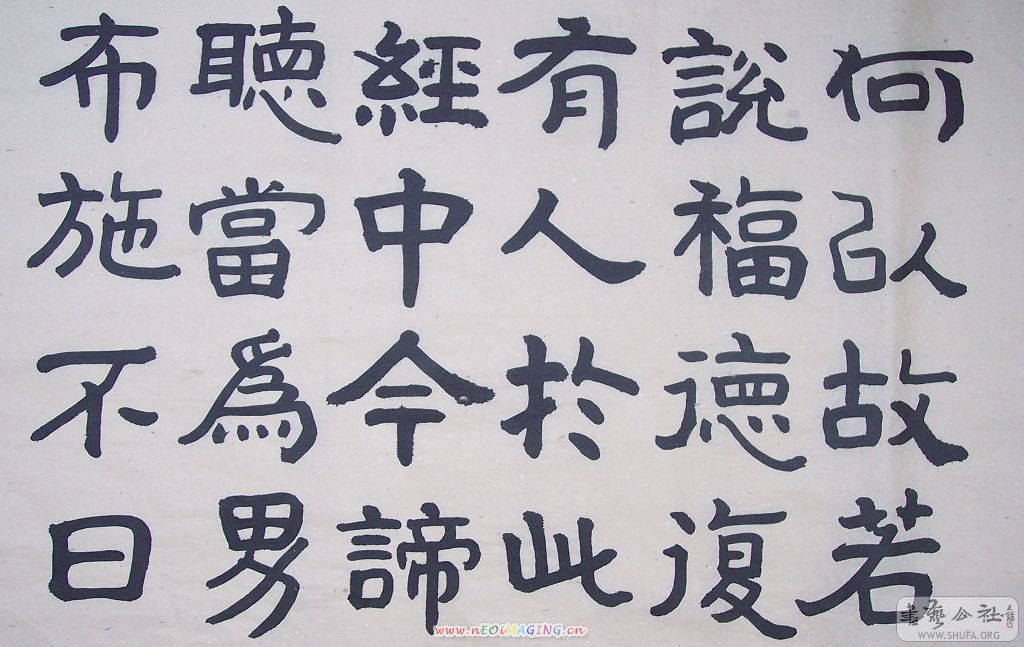 何以故若
說福德復
有人於此
經中今諦
聽當為男
布施不曰
www.nEOiMAGiNG.cn
書藝公社
WWW.SHUFA.ORG